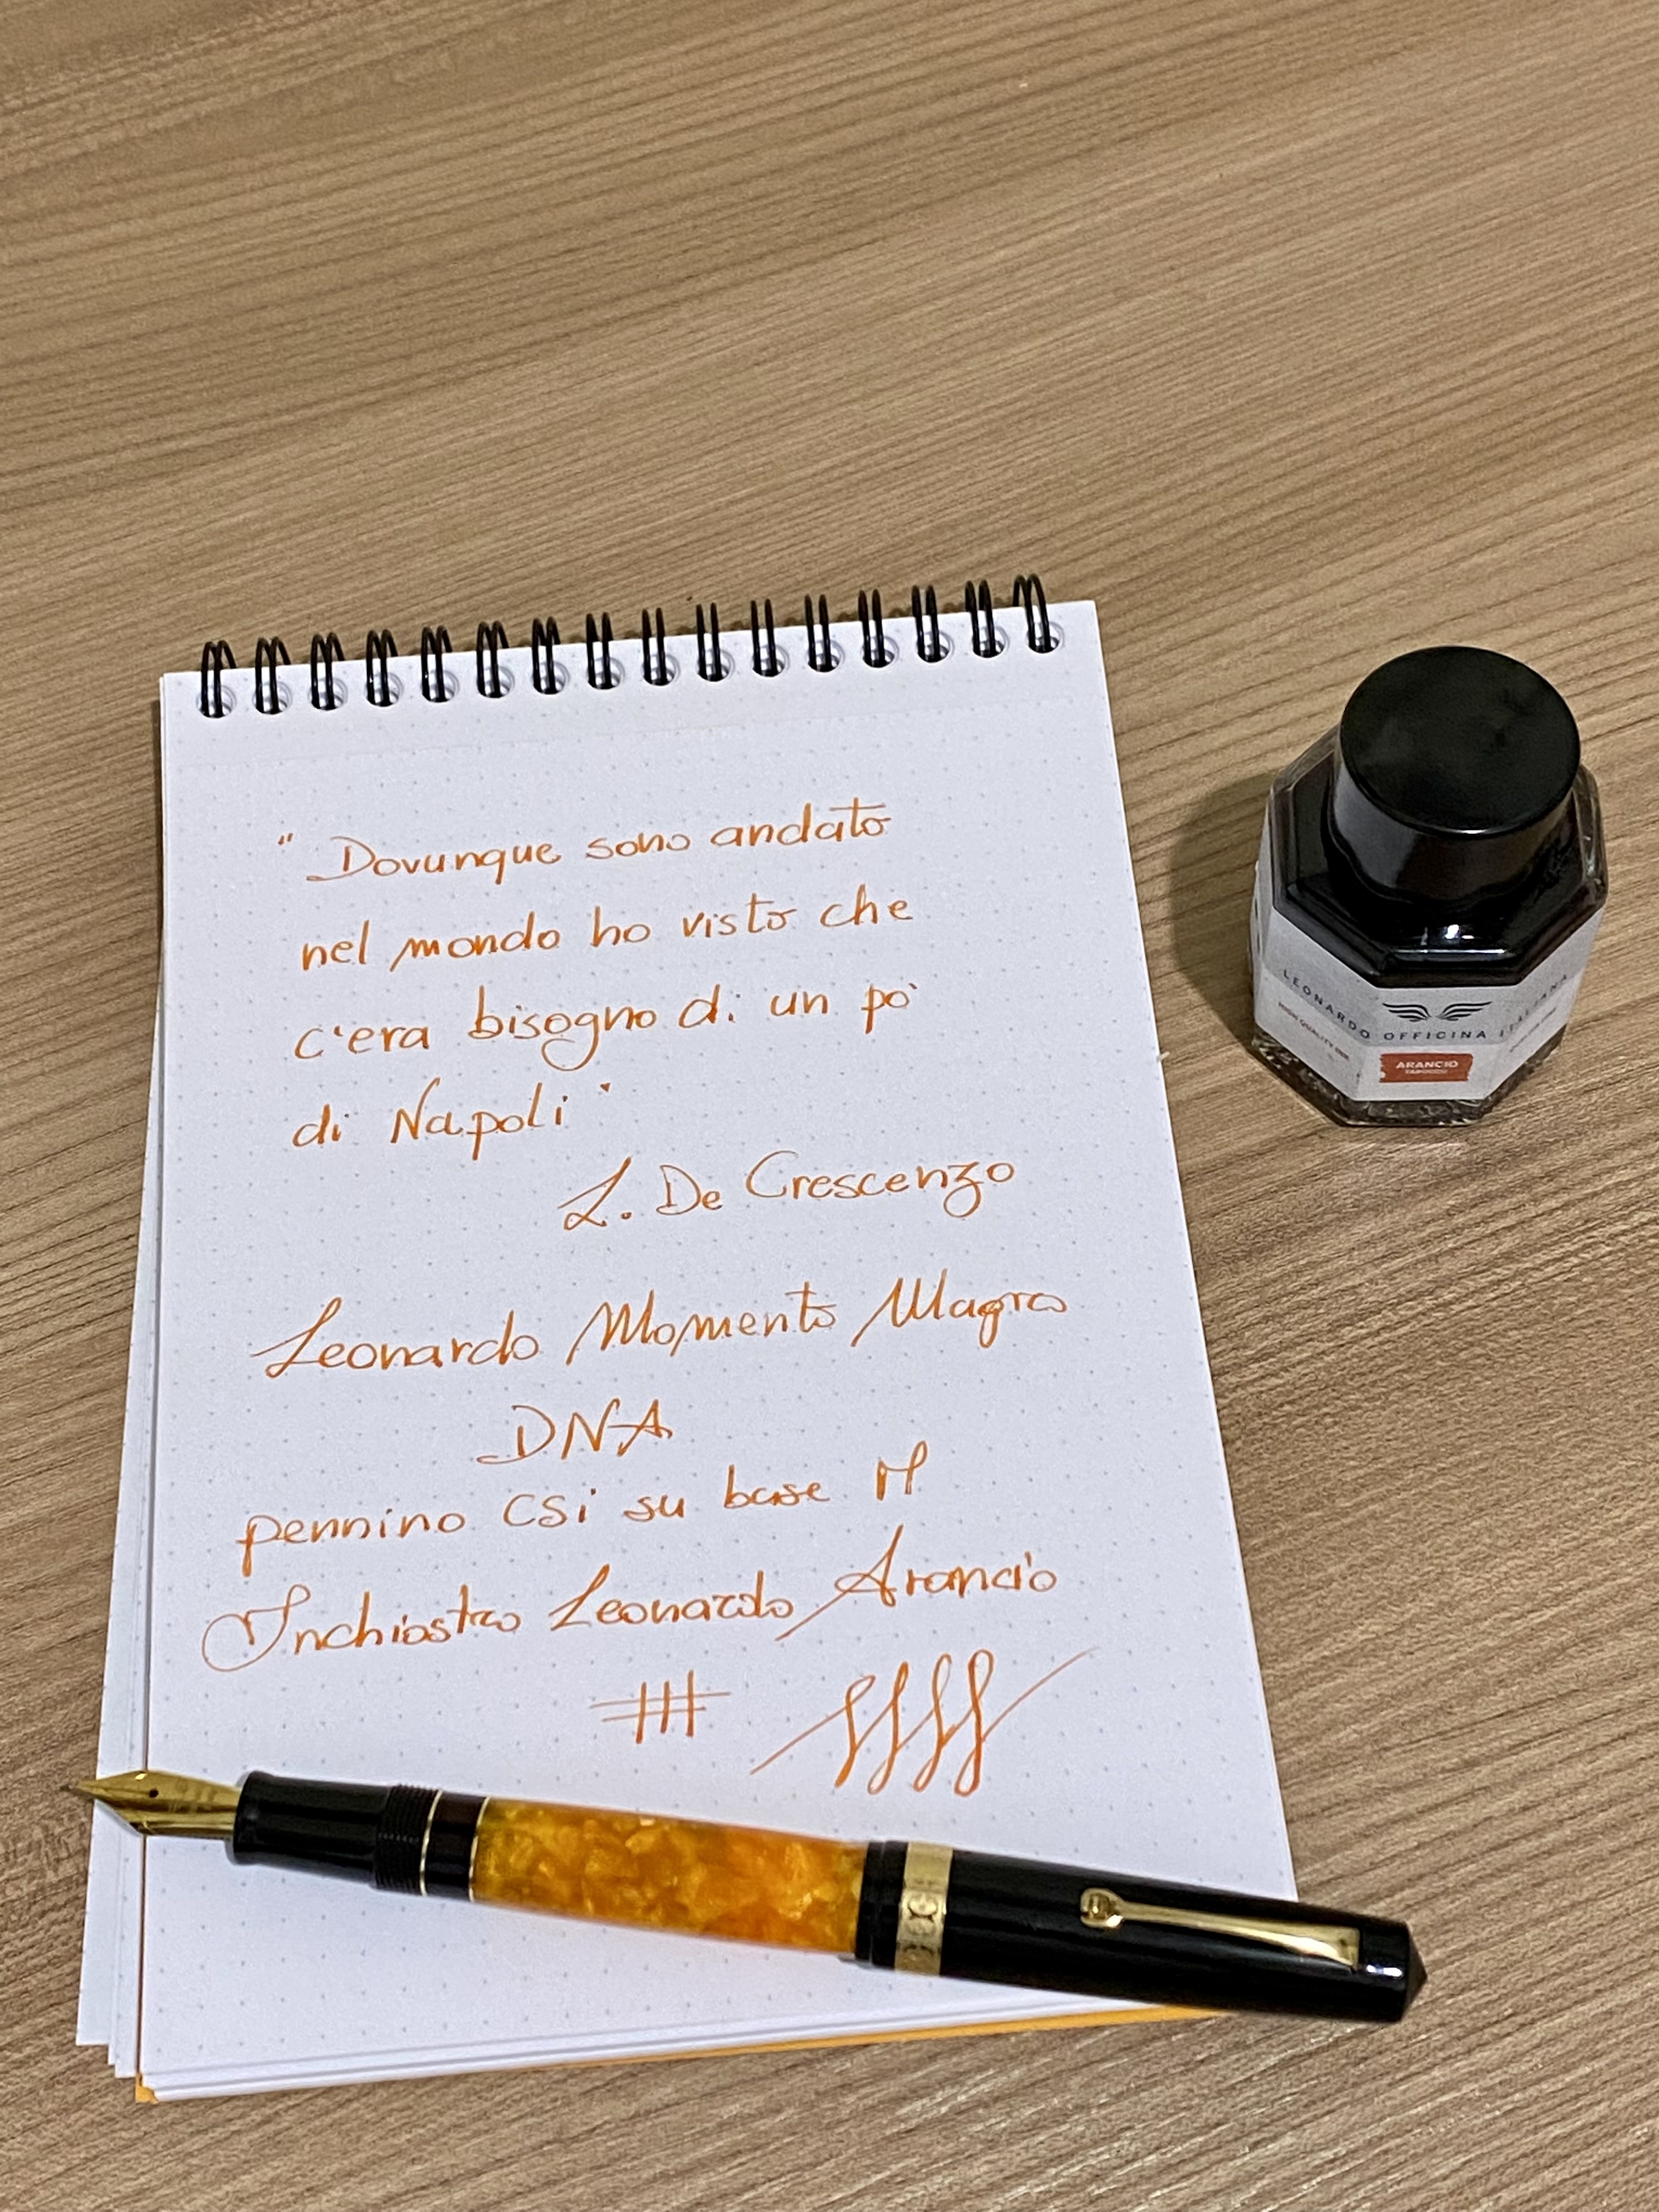 " Dovunque sono andato
nel mondo ho visto che
c'era bisogno di un po'
di Napoli "
L. De Crescenzo
Leonardo Momento Magico
DNA
pennino CSI su base M
Inchiostro Leonardo Arancio
LEONARDO OFFICINA ITALIANA
HIGH QUALITY INK
ARANCIO